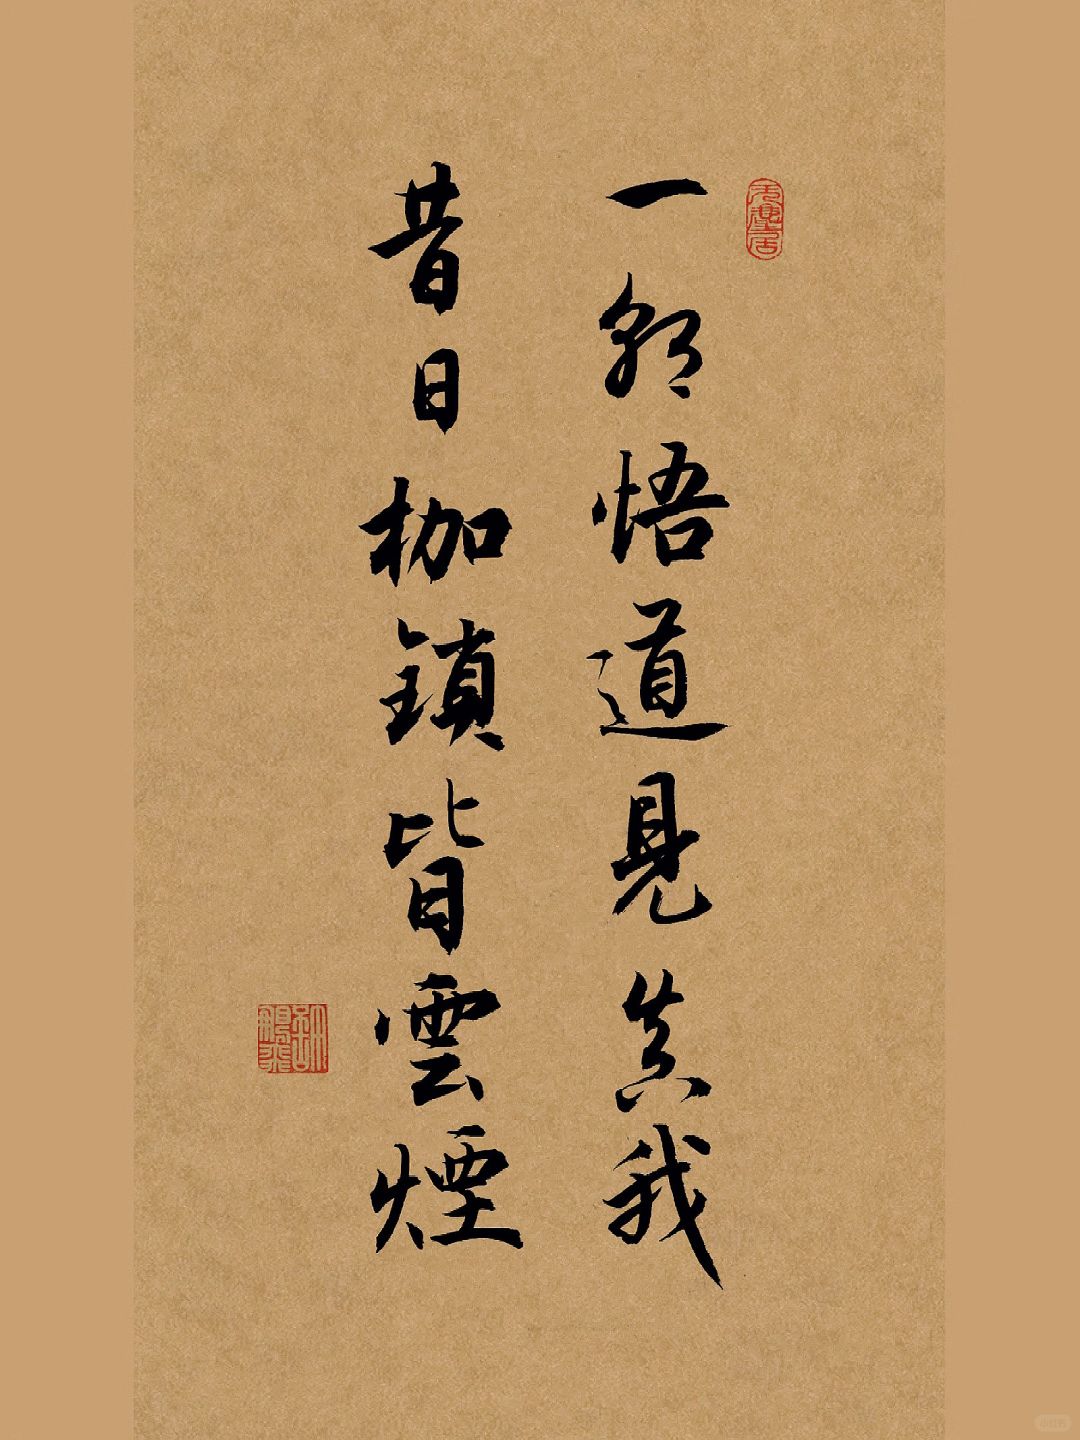 一朝悟道見真我
昔日枷鎖皆雲煙